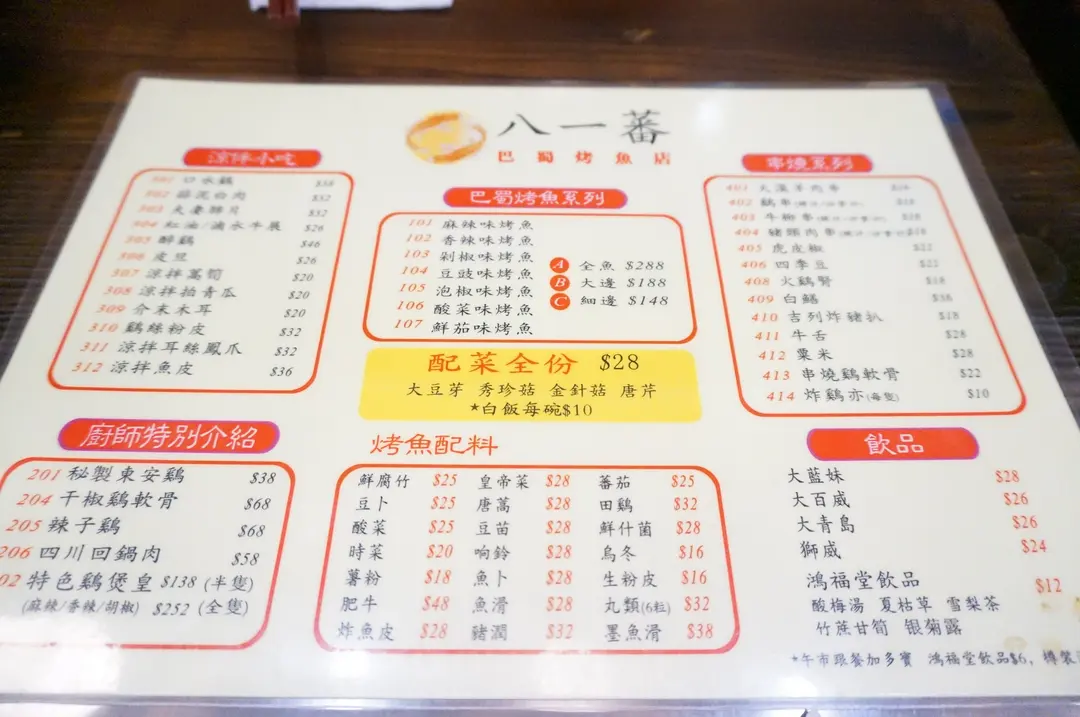 八一蕃
巴蜀烤魚店
涼伴小吃
301 口水鷄 $38
302 蒜泥白肉 $32
303 夫妻肺片 $32
304 紅油/滷水牛展 $26
305 醉鷄 $46
306 皮豆 $26
307 涼拌萵筍 $20
308 涼拌拍青瓜 $20
309 介末木耳 $20
310 鷄絲粉皮 $32
311 涼拌耳絲鳳爪 $32
312 涼拌魚皮 $36
巴蜀烤魚系列
101 麻辣味烤魚
102 香辣味烤魚
103 剁椒味烤魚
104 豆豉味烤魚
105 泡椒味烤魚
106 酸菜味烤魚
107 鮮茄味烤魚
A 全魚 $288
B 大邊 $188
C 細邊 $148
配菜全份 $28
大豆芽 秀珍菇 金針菇 唐芹
*白飯每碗$10
串燒系列
401 大漠羊肉串
402 鷄串
403 牛柳串
404 豬頸肉串
405 虎皮椒 $22
406 四季豆 $22
408 火鷄腎 $18
409 白鱔 $36
410 吉列炸豬扒 $18
411 牛舌 $28
412 粟米 $28
413 串燒鷄軟骨 $22
414 炸鷄亦(每隻) $10
廚師特別介紹
201 秘製東安鷄 $38
204 干椒鷄軟骨 $68
205 辣子鷄 $68
206 四川回鍋肉 $58
02 特色鷄煲皇 $138 (半隻)
(麻辣/香辣/胡椒) $252 (全隻)
烤魚配料
鮮腐竹 $25 皇帝菜 $28 蕃茄 $25
豆卜 $25 唐萵 $28 田鷄 $32
酸菜 $25 豆苗 $28 鮮什菌 $28
時菜 $20 响鈴 $28 烏冬 $16
薯粉 $18 魚卜 $28 生粉皮 $16
肥牛 $48 魚滑 $28 丸類(6粒) $32
炸魚皮 $28 豬潤 $32 墨魚滑 $38
飲品
大藍妹 $28
大百威 $26
大青島 $26
獅威 $24
鴻福堂飲品 $12
酸梅湯 夏枯草 雪梨茶
竹蔗甘筍 银菊露
*午市跟餐加多寶 鴻福堂飲品$6，樽裝